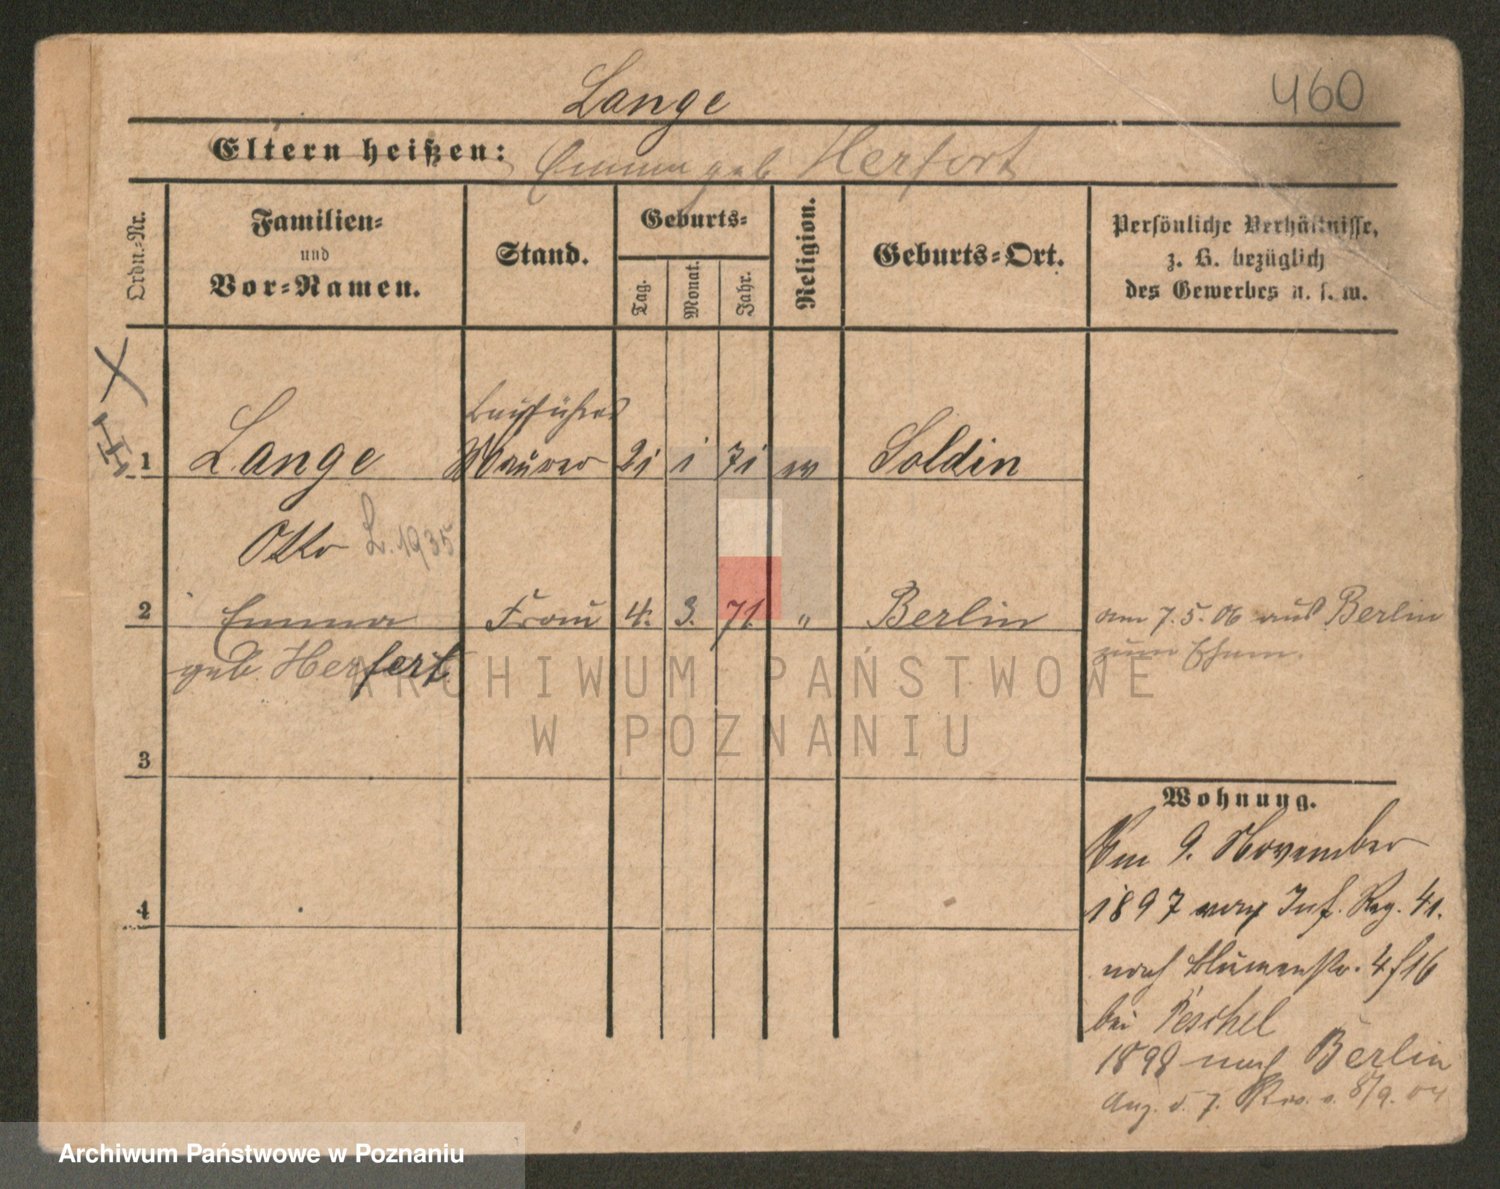 Lange
460
Eltern heißen: Emma geb Herfort
Ordn.-Nr.
Familien-
und
Vor-Namen.
Stand.
Geburts-
Tag.
Monat.
Jahr.
Religion.
Geburts-Ort.
Persönliche Verhältnisse,
z. B. bezüglich
des Gewerbes u. s. w.
Bauführer
1 Lange Maurer 21 1 71 ev Soldin
Otto L. 1935
2 Emma Frau 4. 3. 71. " Berlin am 7. 5. 06 aus Berlin
geb. Herfert zum Ehem.
ARCHIWUM PAŃSTWOWE
W POZNANIU
3
Wohnung.
Am 9. November
1897 vom Inf. Reg. 41.
4
nach Blumenstr. 4/16
bei Peschel
1898 nach Berlin
8/9. 04
Archiwum Państwowe w Poznaniu